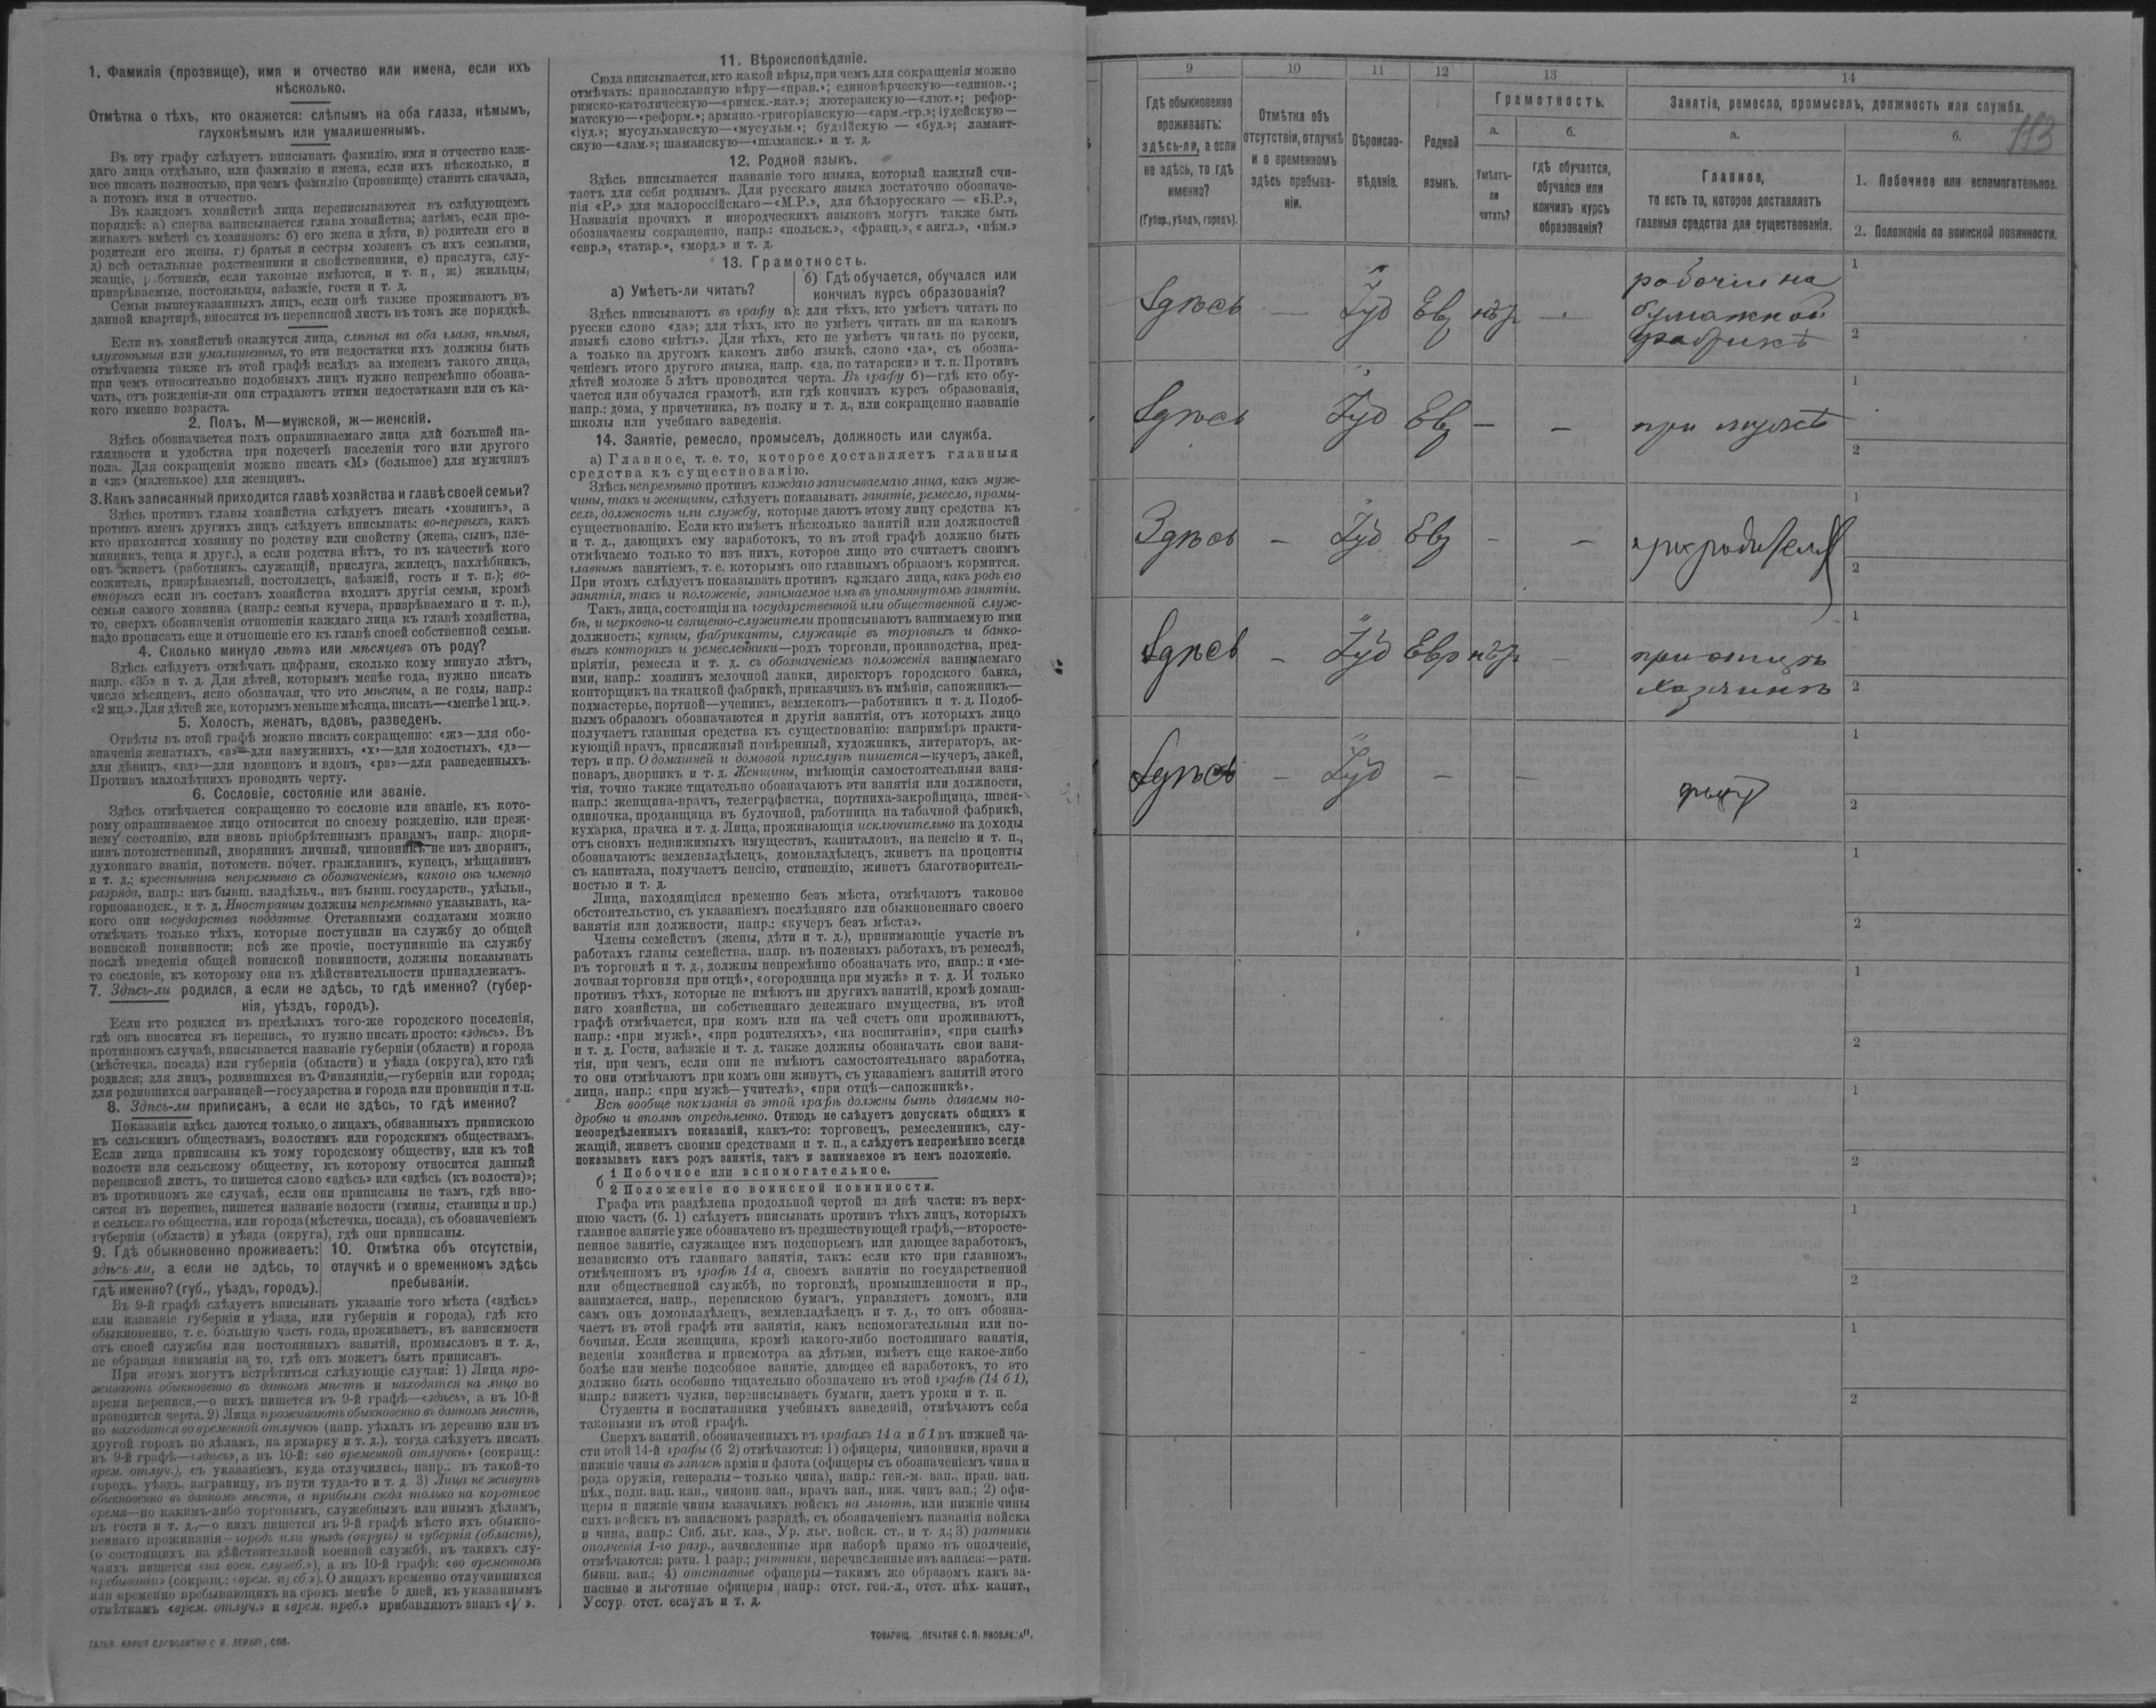 1. Фамилія (прозвище), имя и отчество или имена, если ихъ
нѣсколько.
Отмѣтка о тѣхъ, кто окажется: слѣпымъ на оба глаза, нѣмымъ,
глухонѣмымъ или умалишеннымъ.
Въ эту графу слѣдуетъ вписывать фамилію, имя и отчество каж-
даго лица отдѣльно, или фамилію и имена, если ихъ нѣсколько, и
все писать полностью, при чемъ фамилію (прозвище) ставить сначала,
а потомъ имя и отчество.
Въ каждомъ хозяйствѣ лица переписываются въ слѣдующемъ
порядкѣ: а) сперва записывается глава хозяйства; затѣмъ, если про-
живаютъ вмѣстѣ съ хозяиномъ: б) его жена и дѣти, в) родители его и
родители его жены, г) братья и сестры хозяевъ съ ихъ семьями,
д) всѣ остальные родственники и свойственники, е) прислуга, слу-
жащіе, работники, если таковые имѣются, и т. п., ж) жильцы,
призрѣваемые, постояльцы, заѣзжіе, гости и т. д.
Семьи вышеуказанныхъ лицъ, если онѣ также проживаютъ въ
данной квартирѣ, вносятся въ переписной листъ въ томъ же порядкѣ.
Если въ хозяйствѣ окажутся лица, слѣпыя на оба глаза, нѣмыя,
глухонѣмыя или умалишенныя, то эти недостатки ихъ должны быть
отмѣчаемы также въ этой графѣ вслѣдъ за именемъ такого лица,
при чемъ относительно подобныхъ лицъ нужно непремѣнно обозна-
чать, отъ рожденія-ли они страдаютъ этими недостатками или съ ка-
кого именно возраста.
2. Полъ. М—мужской, ж—женскій.
Здѣсь обозначается полъ опрашиваемаго лица для большей на-
глядности и удобства при подсчетѣ населенія того или другого
пола. Для сокращенія можно писать «М» (большое) для мужчинъ
и «ж» (маленькое) для женщинъ.
3. Какъ записанный приходится главѣ хозяйства и главѣ своей семьи?
Здѣсь противъ главы хозяйства слѣдуетъ писать «хозяинъ», а
противъ именъ другихъ лицъ слѣдуетъ вписывать: во-первыхъ, какъ
кто приходится хозяину по родству или свойству (жена, сынъ, пле-
мянникъ, теща и друг.), а если родства нѣтъ, то въ качествѣ кого
онъ живетъ (работникъ, служащій, прислуга, жилецъ, нахлѣбникъ,
сожитель, призрѣваемый, постоялецъ, заѣзжій, гость и т. п.); во-
вторыхъ если въ составъ хозяйства входятъ другія семьи, кромѣ
семьи самого хозяина (напр.: семья кучера, призрѣваемаго и т. п.),
то, сверхъ обозначенія отношенія каждаго лица къ главѣ хозяйства,
надо прописать еще и отношеніе его къ главѣ своей собственной семьи.
4. Сколько минуло лѣтъ или мѣсяцевъ отъ роду?
Здѣсь слѣдуетъ отмѣчать цифрами, сколько кому минуло лѣтъ,
напр. «35» и т. д. Для дѣтей, которымъ менѣе года, нужно писать
число мѣсяцевъ, ясно обозначая, что это мѣсяцы, а не годы, напр.:
«2 мц.». Для дѣтей же, которымъ меньше мѣсяца, писать—«менѣе 1 мц.».
5. Холостъ, женатъ, вдовъ, разведенъ.
Отвѣты въ этой графѣ можно писать сокращенно: «ж»—для обо-
значенія женатыхъ, «з»—для замужнихъ, «х»—для холостыхъ, «д»—
для дѣвицъ, «вд»—для вдовцовъ и вдовъ, «рз»—для разведенныхъ.
Противъ малолѣтнихъ проводить черту.
6. Сословіе, состояніе или званіе.
Здѣсь отмѣчается сокращенно то сословіе или званіе, къ кото-
рому опрашиваемое лицо относится по своему рожденію, или преж-
нему состоянію, или вновь пріобрѣтеннымъ правамъ, напр.: дворя-
нинъ потомственный, дворянинъ личный, чиновникъ не изъ дворянъ,
духовнаго званія, потомств. почет. гражданинъ, купецъ, мѣщанинъ
и т. д.; крестьянинъ непремѣнно съ обозначеніемъ, какого онъ именно
разряда, напр.: изъ бывш. владѣльч., изъ бывш. государств., удѣльн.,
горнозаводск., и т. д. Иностранцы должны непремѣнно указывать, ка-
кого они государства подданные. Отставными солдатами можно
отмѣчать только тѣхъ, которые поступили на службу до общей
воинской повинности; всѣ же прочіе, поступившіе на службу
послѣ введенія общей воинской повинности, должны показывать
то сословіе, къ которому они въ дѣйствительности принадлежатъ.
7. Здѣсь-ли родился, а если не здѣсь, то гдѣ именно? (губер-
нія, уѣздъ, городъ).
Если кто родился въ предѣлахъ того-же городского поселенія,
гдѣ онъ вносится въ перепись, то нужно писать просто: «здѣсь». Въ
противномъ случаѣ, вписывается названіе губерніи (области) и города
(мѣстечка, посада) или губерніи (области) и уѣзда (округа), кто гдѣ
родился; для лицъ, родившихся въ Финляндіи,—губерніи или города;
для родившихся заграницей—государства и города или провинціи и т.п.
8. Здѣсь-ли приписанъ, а если не здѣсь, то гдѣ именно?
Показанія здѣсь даются только о лицахъ, обязанныхъ припискою
къ сельскимъ обществамъ, волостямъ или городскимъ обществамъ.
Если лица приписаны къ тому городскому обществу, или къ той
волости или сельскому обществу, къ которому относится данный
переписной листъ, то пишется слово «здѣсь» или «здѣсь (къ волости)»;
въ противномъ же случаѣ, если они приписаны не тамъ, гдѣ вно-
сятся въ перепись, пишется названіе волости (гмины, станицы и пр.)
и сельскаго общества, или города (мѣстечка, посада), съ обозначеніемъ
губерніи (области) и уѣзда (округа), гдѣ они приписаны.
9. Гдѣ обыкновенно проживаетъ:
здѣсь-ли, а если не здѣсь, то
гдѣ именно? (губ., уѣздъ, городъ).
10. Отмѣтка объ отсутствіи,
отлучкѣ и о временномъ здѣсь
пребываніи.
Въ 9-й графѣ слѣдуетъ вписывать указаніе того мѣста («здѣсь»
или названіе губерніи и уѣзда, или губерніи и города), гдѣ кто
обыкновенно, т. е. большую часть года, проживаетъ, въ зависимости
отъ своей службы или постоянныхъ занятій, промысловъ и т. д.,
не обращая вниманія на то, гдѣ онъ можетъ быть приписанъ.
При этомъ могутъ встрѣтиться слѣдующіе случаи: 1) Лица про-
живаютъ обыкновенно въ данномъ мѣстѣ и находятся на лицо во
время переписи,—о нихъ пишется въ 9-й графѣ—«здѣсь», а въ 10-й
проводится черта. 2) Лица проживаютъ обыкновенно въ данномъ мѣстѣ,
но находятся во временной отлучкѣ (напр. уѣхалъ въ деревню или въ
другой городъ по дѣламъ, на ярмарку и т. д.), тогда слѣдуетъ писать
въ 9-й графѣ—«здѣсь», а въ 10-й: «во временной отлучкѣ» (сокращ.:
врем. отлуч.), съ указаніемъ, куда отлучились, напр.: въ такой-то
городъ, уѣздъ, заграницу, въ пути туда-то и т. д. 3) Лица не живутъ
обыкновенно въ данномъ мѣстѣ, а прибыли сюда только на короткое
время—по какимъ-либо торговымъ, служебнымъ или инымъ дѣламъ,
въ гости и т. д.,—о нихъ пишется въ 9-й графѣ мѣсто ихъ обыкно-
веннаго проживанія—городъ или уѣздъ (округъ) и губернія (область),
(о состоящихъ на дѣйствительной военной службѣ, въ такихъ слу-
чаяхъ пишется «на воен. служб.»), а въ 10-й графѣ: «во временномъ
пребываніи» (сокращ.: «врем. преб.»). О лицахъ временно отлучившихся
или временно пребывающихъ на срокъ менѣе 5 дней, къ указаннымъ
отмѣткамъ «врем. отлуч.» и «врем. преб.» прибавляютъ знакъ «V».
11. Вѣроисповѣданіе.
Сюда вписывается, кто какой вѣры, при чемъ для сокращенія можно
отмѣчать: православную вѣру—«прав.»; единовѣрческую—«единов.»;
римско-католическую—«римск.-кат.»; лютеранскую—«лют.»; рефор-
матскую—«реформ.»; армяно-григоріанскую—«арм.-гр.»; іудейскую—
«іуд.»; мусульманскую—«мусульм.»; буддійскую — «буд.»; ламаит-
скую—«лам.»; шаманскую—«шаманск.» и т. д.
12. Родной языкъ.
Здѣсь вписывается названіе того языка, который каждый счи-
таетъ для себя роднымъ. Для русскаго языка достаточно обозначе-
нія «Р.» для малороссійскаго—«М.Р.», для бѣлорусскаго — «Б.Р.»,
Названія прочихъ и инородческихъ языковъ могутъ также быть
обозначаемы сокращенно, напр.: «польск.», «франц.», «англ.», «нѣм.»
«евр.», «татар.», «морд.» и т. д.
13. Грамотность.
а) Умѣетъ-ли читать?
б) Гдѣ обучается, обучался или
кончилъ курсъ образованія?
Здѣсь вписываютъ въ графу а): для тѣхъ, кто умѣетъ читать по
русски слово «да»; для тѣхъ, кто не умѣетъ читать ни на какомъ
языкѣ слово «нѣтъ». Для тѣхъ, кто не умѣетъ читать по русски,
а только на другомъ какомъ либо языкѣ, слово «да», съ обозна-
ченіемъ этого другого языка, напр. «да, по татарски» и т. п. Противъ
дѣтей моложе 5 лѣтъ проводится черта. Въ графу б)—гдѣ кто обу-
чается или обучался грамотѣ, или гдѣ кончилъ курсъ образованія,
напр.: дома, у причетника, въ полку и т. д., или сокращенно названіе
школы или учебнаго заведенія.
14. Занятіе, ремесло, промыселъ, должность или служба.
а) Главное, т. е. то, которое доставляетъ главныя
средства къ существованію.
Здѣсь непремѣнно противъ каждаго записываемаго лица, какъ муж-
чины, такъ и женщины, слѣдуетъ показывать занятіе, ремесло, промы-
селъ, должность или службу, которые даютъ этому лицу средства къ
существованію. Если кто имѣетъ нѣсколько занятій или должностей
и т. д., дающихъ ему заработокъ, то въ этой графѣ должно быть
отмѣчаемо только то изъ нихъ, которое лицо это считаетъ своимъ
главнымъ занятіемъ, т. е. которымъ оно главнымъ образомъ кормится.
При этомъ слѣдуетъ показывать противъ каждаго лица, какъ родъ его
занятія, такъ и положеніе, занимаемое имъ въ упомянутомъ занятіи.
Такъ, лица, состоящія на государственной или общественной служ-
бѣ, и церковно-и священно-служители прописываютъ занимаемую ими
должность; купцы, фабриканты, служащіе въ торговыхъ и банко-
выхъ конторахъ и ремесленники—родъ торговли, производства, пред-
пріятія, ремесла и т. д. съ обозначеніемъ положенія занимаемаго
ими, напр.: хозяинъ мелочной лавки, директоръ городского банка,
конторщикъ на ткацкой фабрикѣ, приказчикъ въ имѣніи, сапожникъ—
подмастерье, портной—ученикъ, землекопъ—работникъ и т. д. Подоб-
нымъ образомъ обозначаются и другія занятія, отъ которыхъ лицо
получаетъ главныя средства къ существованію: напримѣръ практи-
кующій врачъ, присяжный повѣренный, художникъ, литераторъ, ак-
теръ и пр. О домашней и домовой прислугѣ пишется—кучеръ, лакей,
поваръ, дворникъ и т. д. Женщины, имѣющія самостоятельныя заня-
тія, точно также тщательно обозначаютъ эти занятія или должности,
напр.: женщина-врачъ, телеграфистка, портниха-закройщица, швея-
одиночка, продавщица въ булочной, работница на табачной фабрикѣ,
кухарка, прачка и т. д. Лица, проживающія исключительно на доходы
отъ своихъ недвижимыхъ имуществъ, капиталовъ, на пенсію и т. п.,
обозначаютъ: землевладѣлецъ, домовладѣлецъ, живетъ на проценты
съ капитала, получаетъ пенсію, стипендію, живетъ благотворитель-
ностью и т. д.
Лица, находящіяся временно безъ мѣста, отмѣчаютъ таковое
обстоятельство, съ указаніемъ послѣдняго или обыкновеннаго своего
занятія или должности, напр.: «кучеръ безъ мѣста».
Члены семействъ (жены, дѣти и т. д.), принимающіе участіе въ
работахъ главы семейства, напр. въ полевыхъ работахъ, въ ремеслѣ,
въ торговлѣ и т. д., должны непремѣнно обозначать это, напр.: и «ме-
лочная торговля при отцѣ», «огородница при мужѣ» и т. д. И только
противъ тѣхъ, которые не имѣютъ ни другихъ занятій, кромѣ домаш-
няго хозяйства, ни собственнаго денежнаго имущества, въ этой
графѣ отмѣчается, при комъ или на чей счетъ они проживаютъ,
напр.: «при мужѣ», «при родителяхъ», «на воспитаніи», «при сынѣ»
и т. д. Гости, заѣзжіе и т. д. также должны обозначать свои заня-
тія, при чемъ, если они не имѣютъ самостоятельнаго заработка,
то они отмѣчаютъ при комъ они живутъ, съ указаніемъ занятій этого
лица, напр.: «при мужѣ—учителѣ», «при отцѣ—сапожникѣ».
Всѣ вообще показанія въ этой графѣ должны быть даваемы по-
дробно и вполнѣ опредѣленно. Отнюдь не слѣдуетъ допускать общихъ и
неопредѣленныхъ показаній, какъ-то: торговецъ, ремесленникъ, слу-
жащій, живетъ своими средствами и т. п., а слѣдуетъ непремѣнно всегда
показывать какъ родъ занятія, такъ и занимаемое въ немъ положеніе.
б 1 Побочное или вспомогательное.
2 Положеніе по воинской повинности.
Графа эта раздѣлена продольной чертой на двѣ части: въ верх-
нюю часть (б. 1) слѣдуетъ вписывать противъ тѣхъ лицъ, которыхъ
главное занятіе уже обозначено въ предшествующей графѣ,—второсте-
пенное занятіе, служащее имъ подспорьемъ или дающее заработокъ,
независимо отъ главнаго занятія, такъ: если кто при главномъ,
отмѣченномъ въ графѣ 14 а, своемъ занятіи по государственной
или общественной службѣ, по торговлѣ, промышленности и пр.,
занимается, напр., перепискою бумагъ, управляетъ домомъ, или
самъ онъ домовладѣлецъ, землевладѣлецъ и т. д., то онъ обозна-
чаетъ въ этой графѣ эти занятія, какъ вспомогательныя или по-
бочныя. Если женщина, кромѣ какого-либо постояннаго занятія,
веденія хозяйства и присмотра за дѣтьми, имѣетъ еще какое-либо
болѣе или менѣе подсобное занятіе, дающее ей заработокъ, то это
должно быть особенно тщательно обозначено въ этой графѣ (14 б 1),
напр.: вяжетъ чулки, переписываетъ бумаги, даетъ уроки и т. п.
Студенты и воспитанники учебныхъ заведеній, отмѣчаютъ себя
таковыми въ этой графѣ.
Сверхъ занятій, обозначенныхъ въ графахъ 14 а и б 1 въ нижней ча-
сти этой 14-й графы (б 2) отмѣчаются: 1) офицеры, чиновники, врачи и
нижніе чины въ запасѣ арміи и флота (офицеры съ обозначеніемъ чина и
рода оружія, генералы—только чина), напр.: ген.-м. зап., прап. зап.
пѣх., подп. зап. кав., чиновн. зап., врачъ зап., ниж. чинъ зап.; 2) офи-
церы и нижніе чины казачьихъ войскъ на льготѣ, или нижніе чины
сихъ войскъ въ запасномъ разрядѣ, съ обозначеніемъ названія войска
и чина, напр.: Снб. льг. каз., Ур. льг. войск. ст., и т. д.; 3) ратники
ополченія 1-го разр., зачисленные при наборѣ прямо въ ополченіе,
отмѣчаются: ратн. 1 разр.; ратники, перечисленные изъ запаса:—ратн.
бывш. зап.; 4) отставные офицеры—такимъ же образомъ какъ за-
пасные и льготные офицеры, напр.: отст. ген.-л., отст. пѣх. капит.,
Уссур. отст. есаулъ и т. д.
ТОВАРИЩ. „ПЕЧАТНЯ С. П. ЯКОВЛЕВА".
9 10 11 12 13 14
Гдѣ обыкновенно
проживаетъ:
здѣсь-ли, а если
не здѣсь, то гдѣ
именно?
(Губер., уѣздъ, городъ).
Отмѣтка объ
отсутствіи, отлучкѣ
и о временномъ
здѣсь пребыва-
ніи.
Вѣроиспо-
вѣданіе.
Родной
языкъ.
Грамотность.
а.
Умѣетъ-
ли
читать?
б.
гдѣ обучается,
обучался или
кончилъ курсъ
образованія?
Занятіе, ремесло, промыселъ, должность или служба.
113
а.
Главное,
то есть то, которое доставляетъ
главныя средства для существованія.
б.
1. Побочное или вспомогательное.
2. Положеніе по воинской повинности.
Здѣсь — Іуд Евр нѣт — рабочій на
бумажной
фабрикѣ
1
2
Здѣсь Іуд Евр — — при мужѣ
1
2
Здѣсь — Іуд Евр — — при родителях
1
2
Здѣсь — Іуд Евр нѣт — при отцѣ
1
2
Здѣсь — Іуд — —
1
2
1
2
1
2
1
2
1
2
1
2